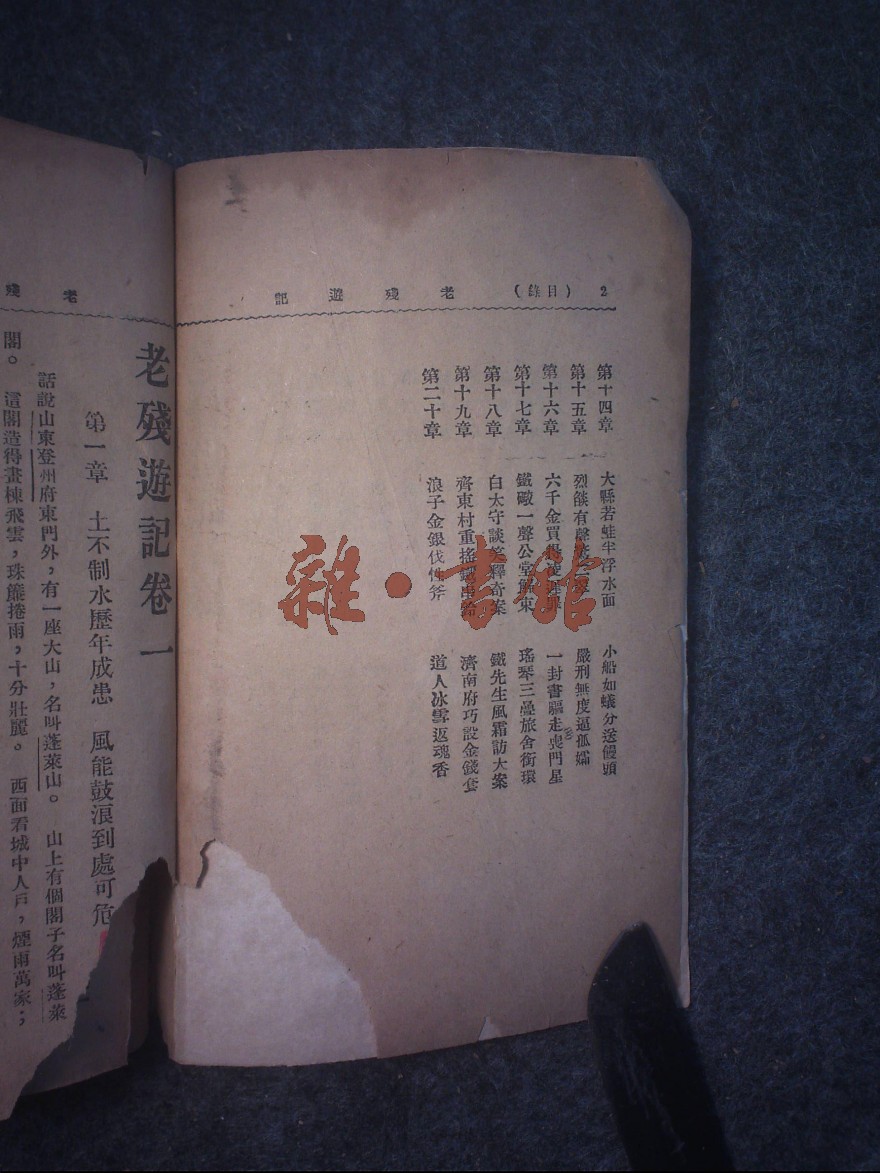 2 (目錄) 老殘遊記
第十四章 大縣若蛙半浮水面 小船如蟻分送饅頭
第十五章 烈燄有聲 嚴刑無度逼孤孀
第十六章 六千金買 一封書驅走喪門星
第十七章 鐵礮一聲公堂解東 瑤琴三疊旅舍銜環
第十八章 白太守談笑釋奇案 鐵先生風霜訪大案
第十九章 齊東村重搖鐵串鈴 濟南府巧設金錢套
第二十章 浪子金銀伐性斧 道人冰雪返魂香
老殘
老殘遊記卷一
第一章 土不制水歷年成患 風能鼓浪到處可危
話說山東登州府東門外,有一座大山,名叫蓬萊山。 山上有個閣子名叫蓬萊
閣。 這閣造得畫棟飛雲,珠簾捲雨,十分壯麗。 西面看城中人戶,煙雨萬家;
雜·書館